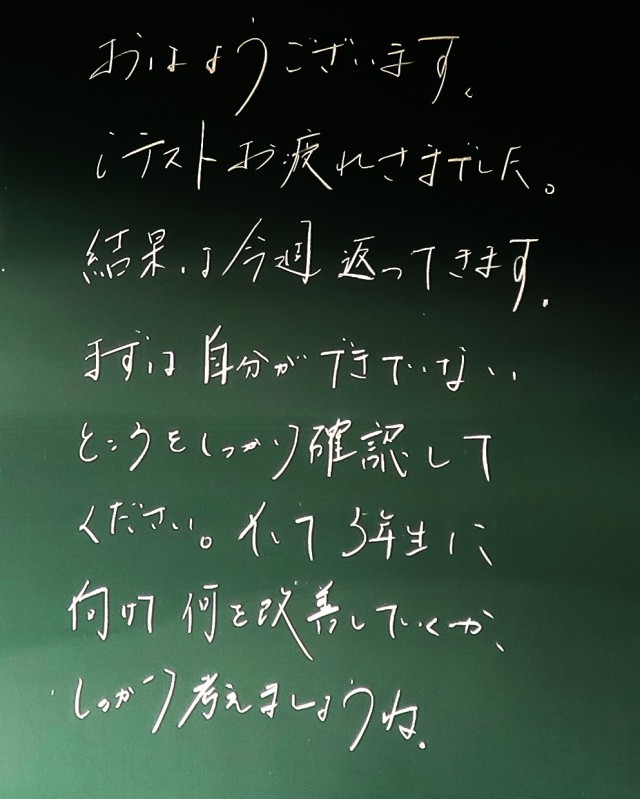 おはようございます。
iテストお疲れさまでした。
結果は今週返ってきます。
まずは自分ができていない
ところをしっかり確認して
ください。そして5年生に
向けて何を改善していくか、
しっかり考えましょうね。